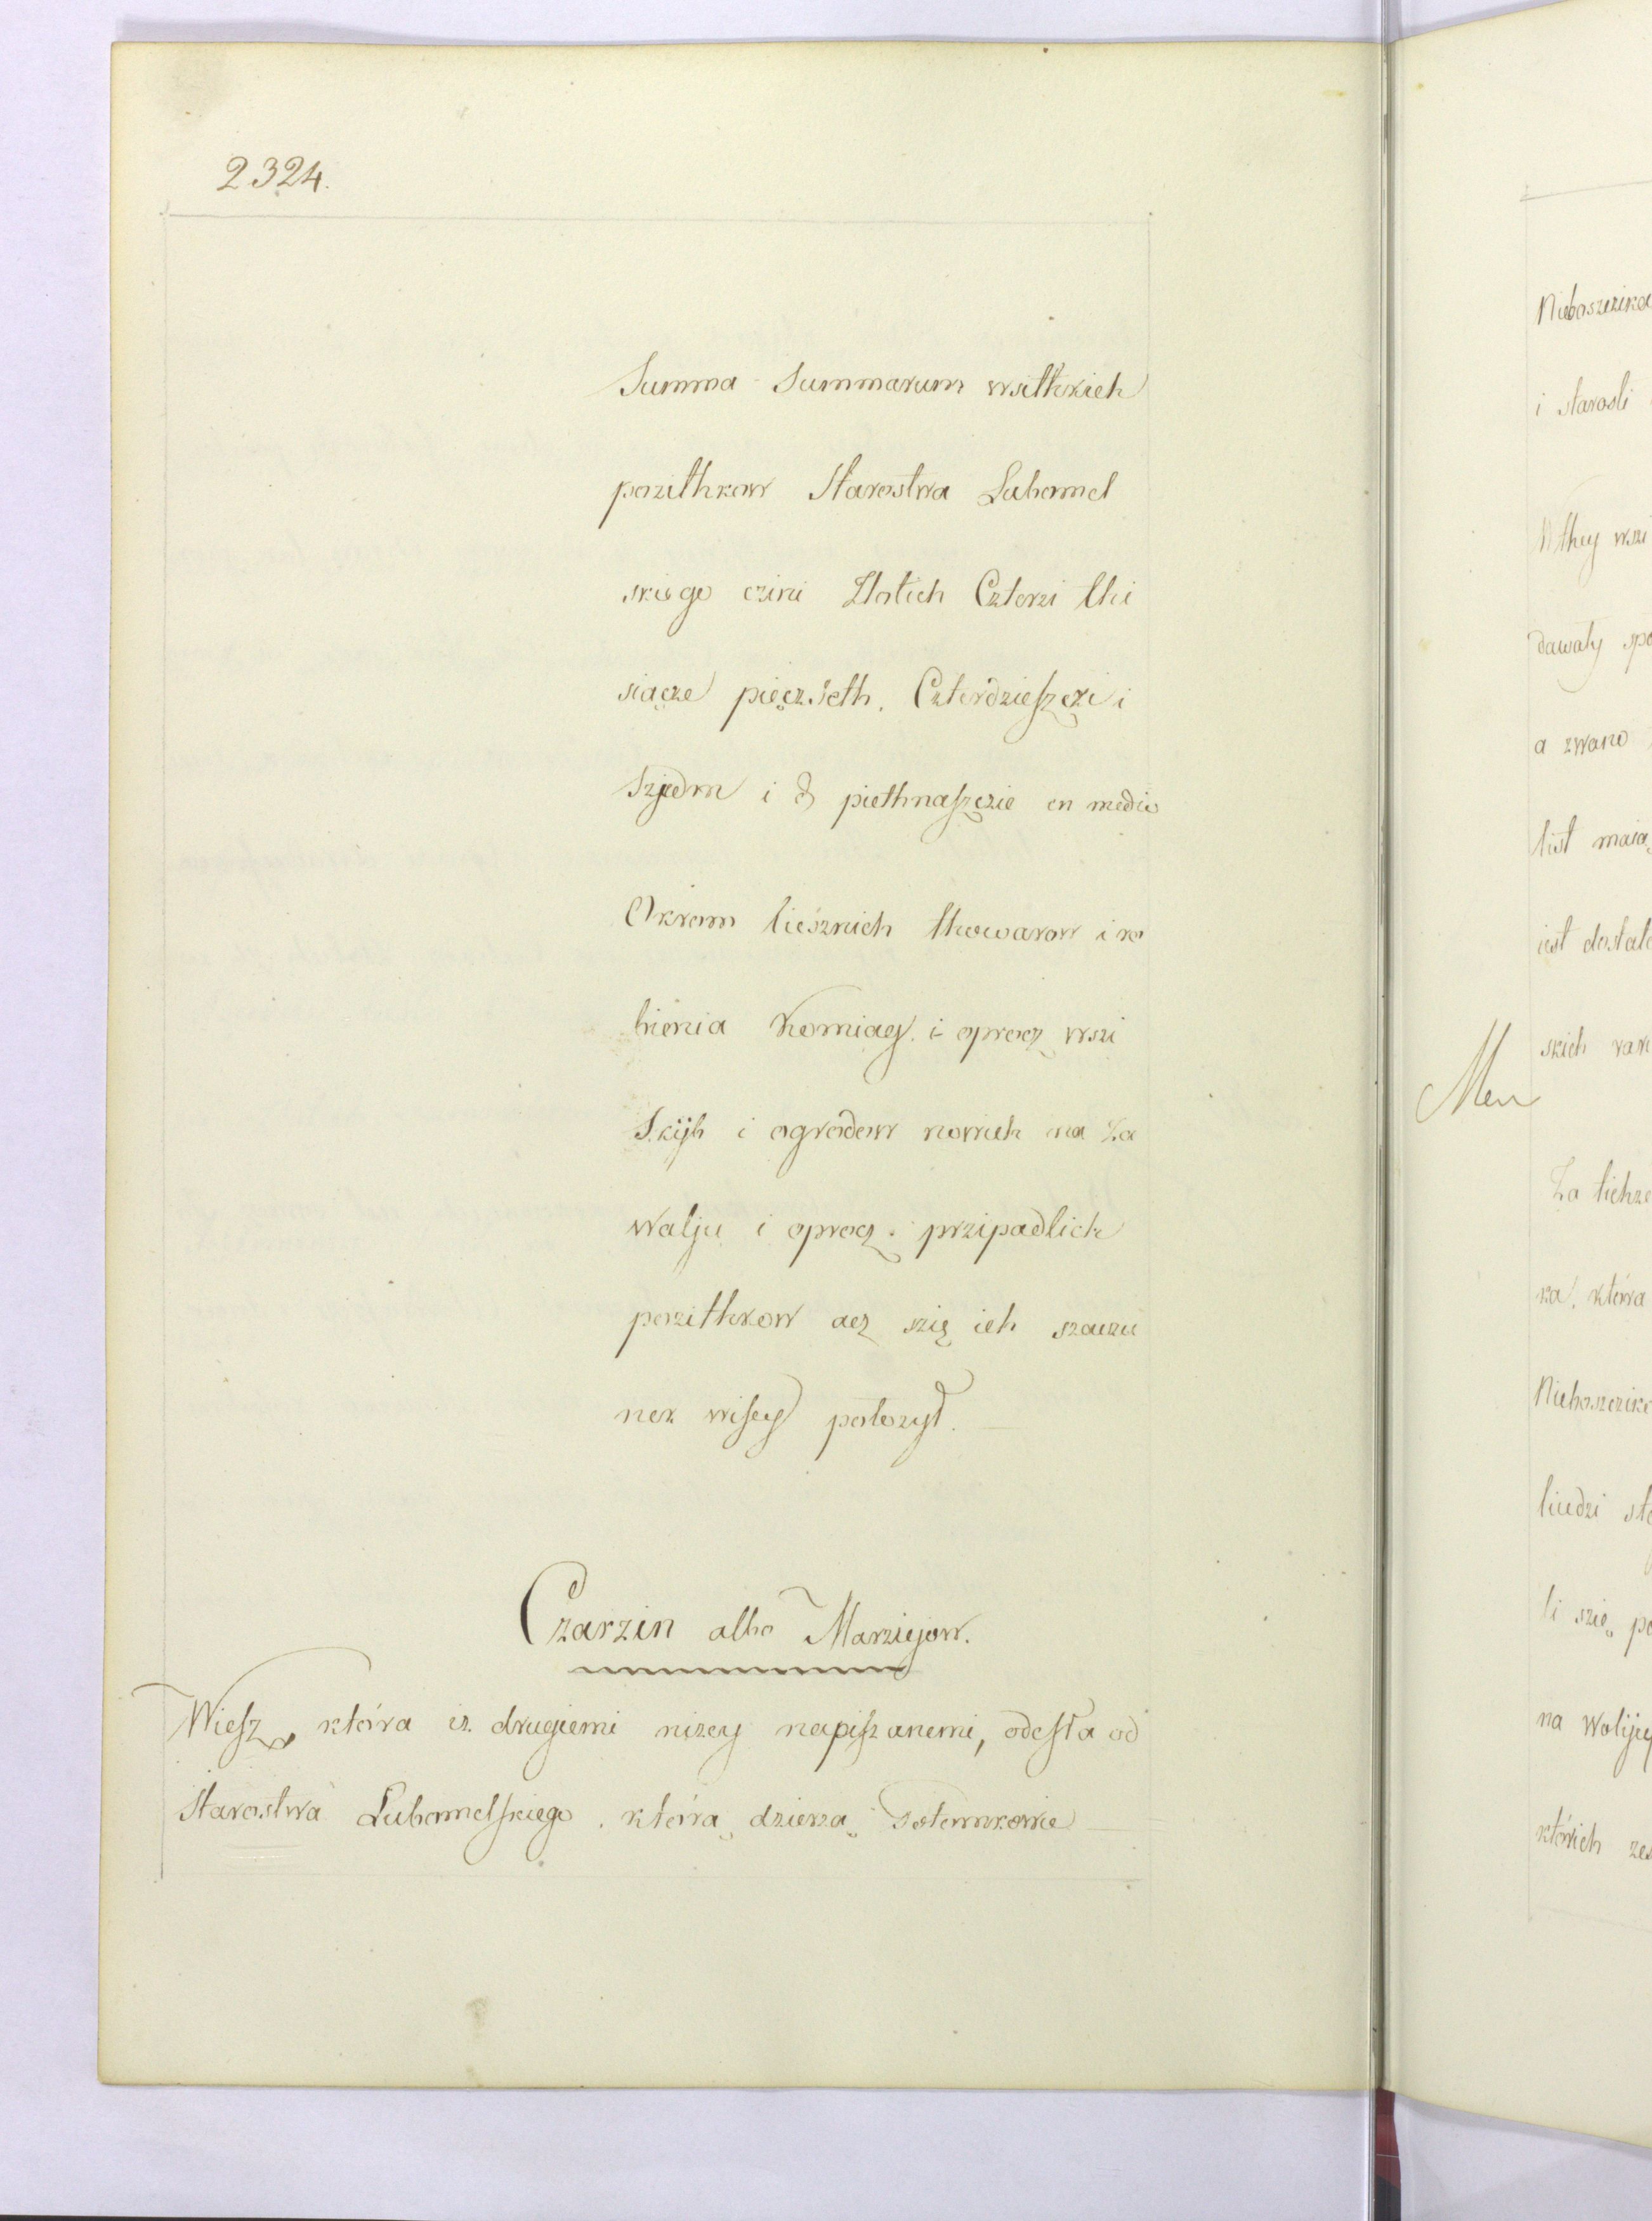 2324.
Summa Summarum wsitkich
pozithkow Starostwa Lubomel
skiego czini Zlotich Czterzi thi
siącze pięczseth. Czterdzieszczi i
szjedm i  piethnaszczie in medio
Okrom liesznich thowarow i ro
bienia Komiag. i oprocz wszi
skijh i ogrodow nowich na Za
walju i oprocz. przipadlich
pozithkow acz szię ich szaczu
nek wiszey polozył.
Czarzin albo Marziejow.
Wiesz, która iz drugiemi nizey napiszanemi, odesła od
Starostwa Lubomelskiego. którą dzierzą Sotownkowie
Nieboszczika
i starosli
W they wszi
dawały spo
a zwano
list maią
iest dostate
skich
Men
Za tich
ka, która
Nieboszczik
liudzi sto
li szię po
na Wolijy
których zes